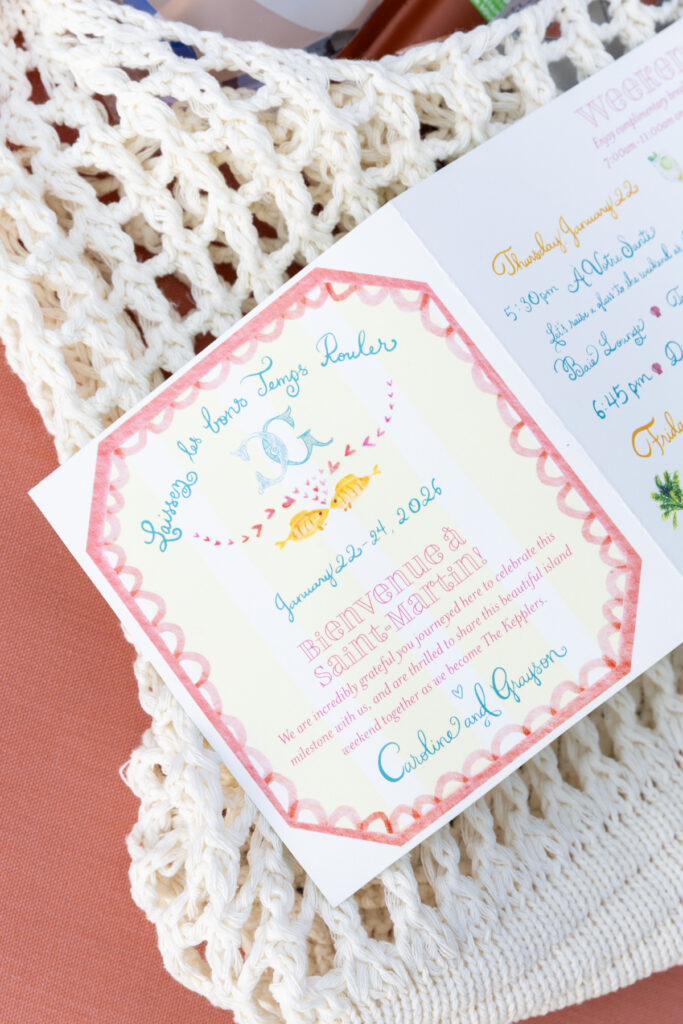 Laissez les bons Temps Rouler
CG
January 22-24, 2026
Bienvenue à
Saint-Martin!
We are incredibly grateful you journeyed here to celebrate this
milestone with us, and are thrilled to share this beautiful island
weekend together as we become The Kepplers.
Caroline and Grayson
Enjoy complimentary
7:00am-11:00am
Thursday, January 22
5:30pm A Votre Santé
Let's raise a glass to the weekend
Baie Lounge
6:45pm